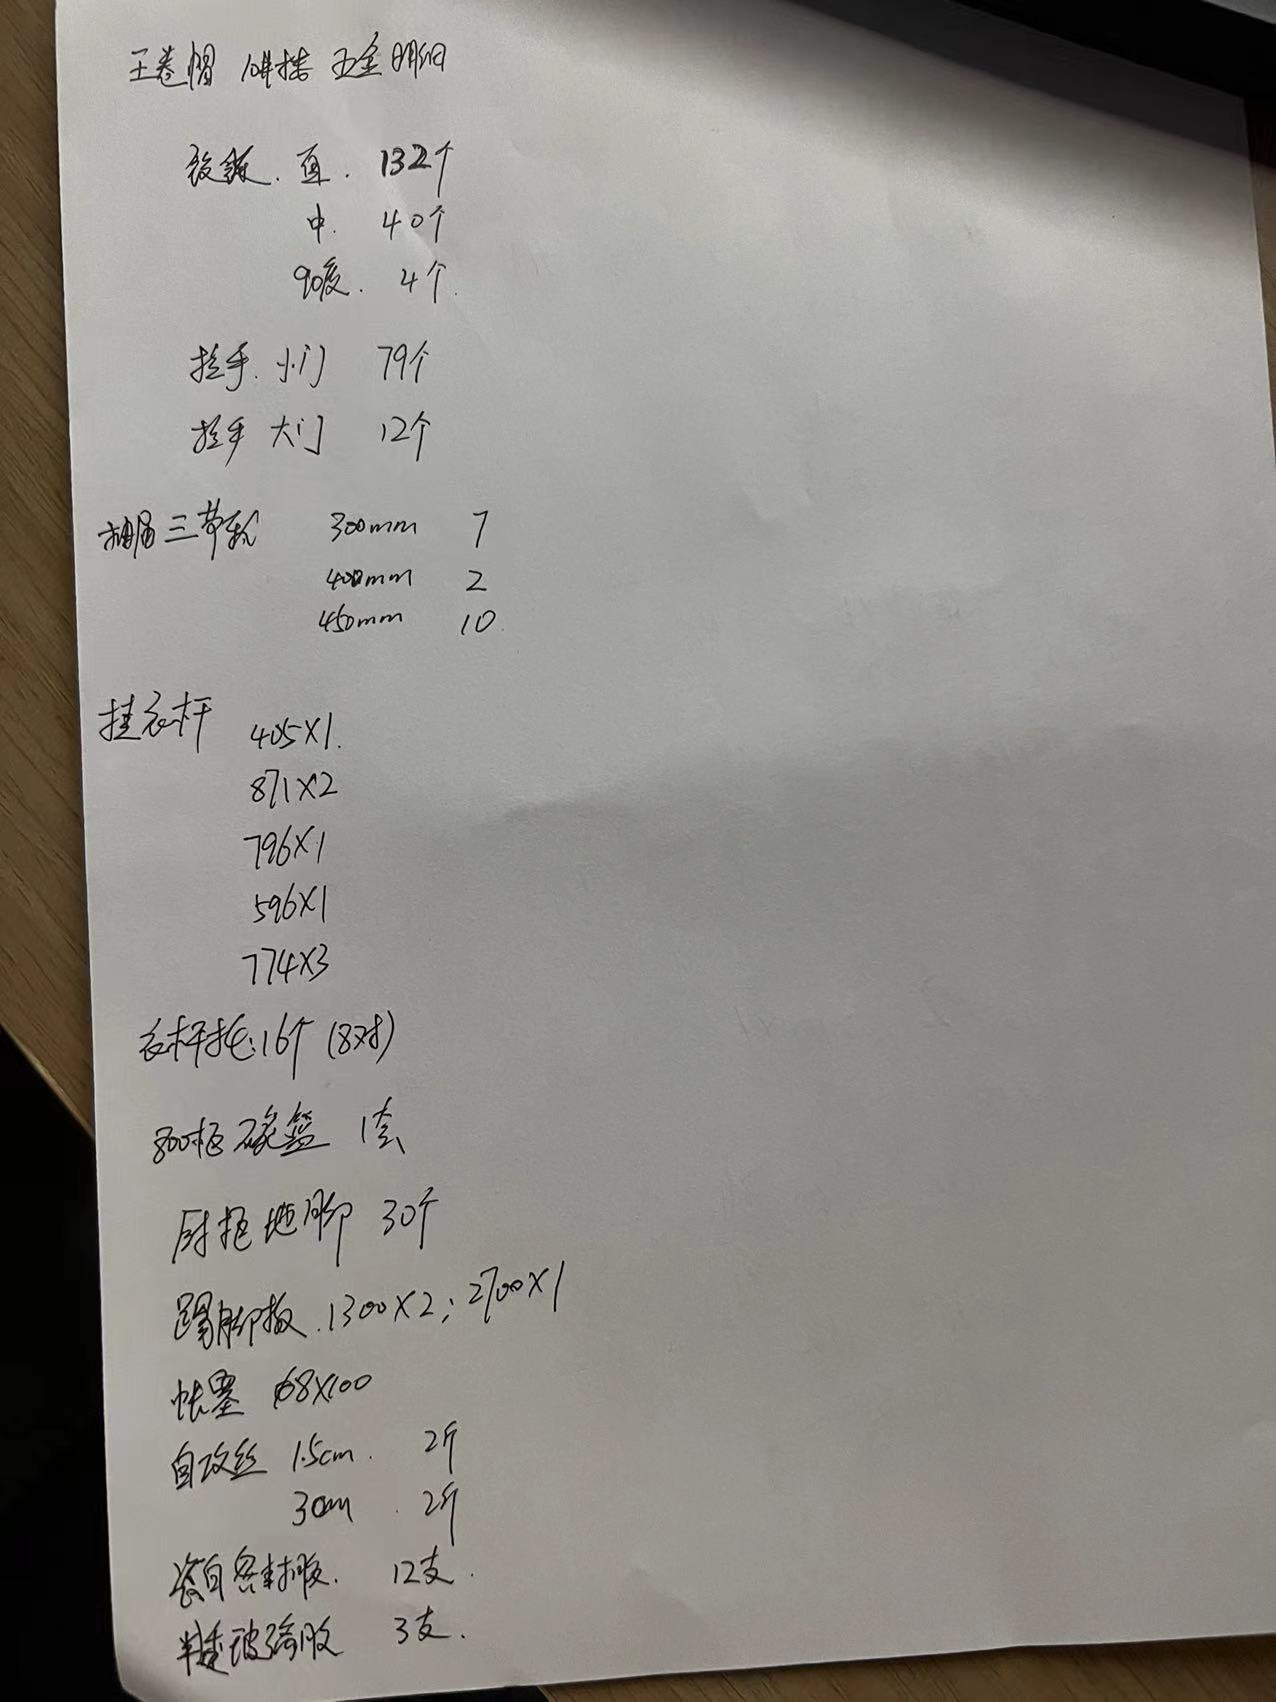 五金明细
铰链. 直. 132个
中. 40个
90度. 4个.
拉手. 小门 79个
拉手 大门 12个
抽屉三节轨 300mm 7
400mm 2
450mm 10.
挂衣杆 405X1.
871X2
796X1
596X1
774X3
衣杆托:16个(8对)
800柜 碗篮 1套
厨柜地脚 30个
踢脚板.1300X2;2700X1
胀塞 68X100
自攻丝 1.5cm. 2斤
3cm . 2斤
瓷白密封胶. 12支.
玻璃胶 3支.